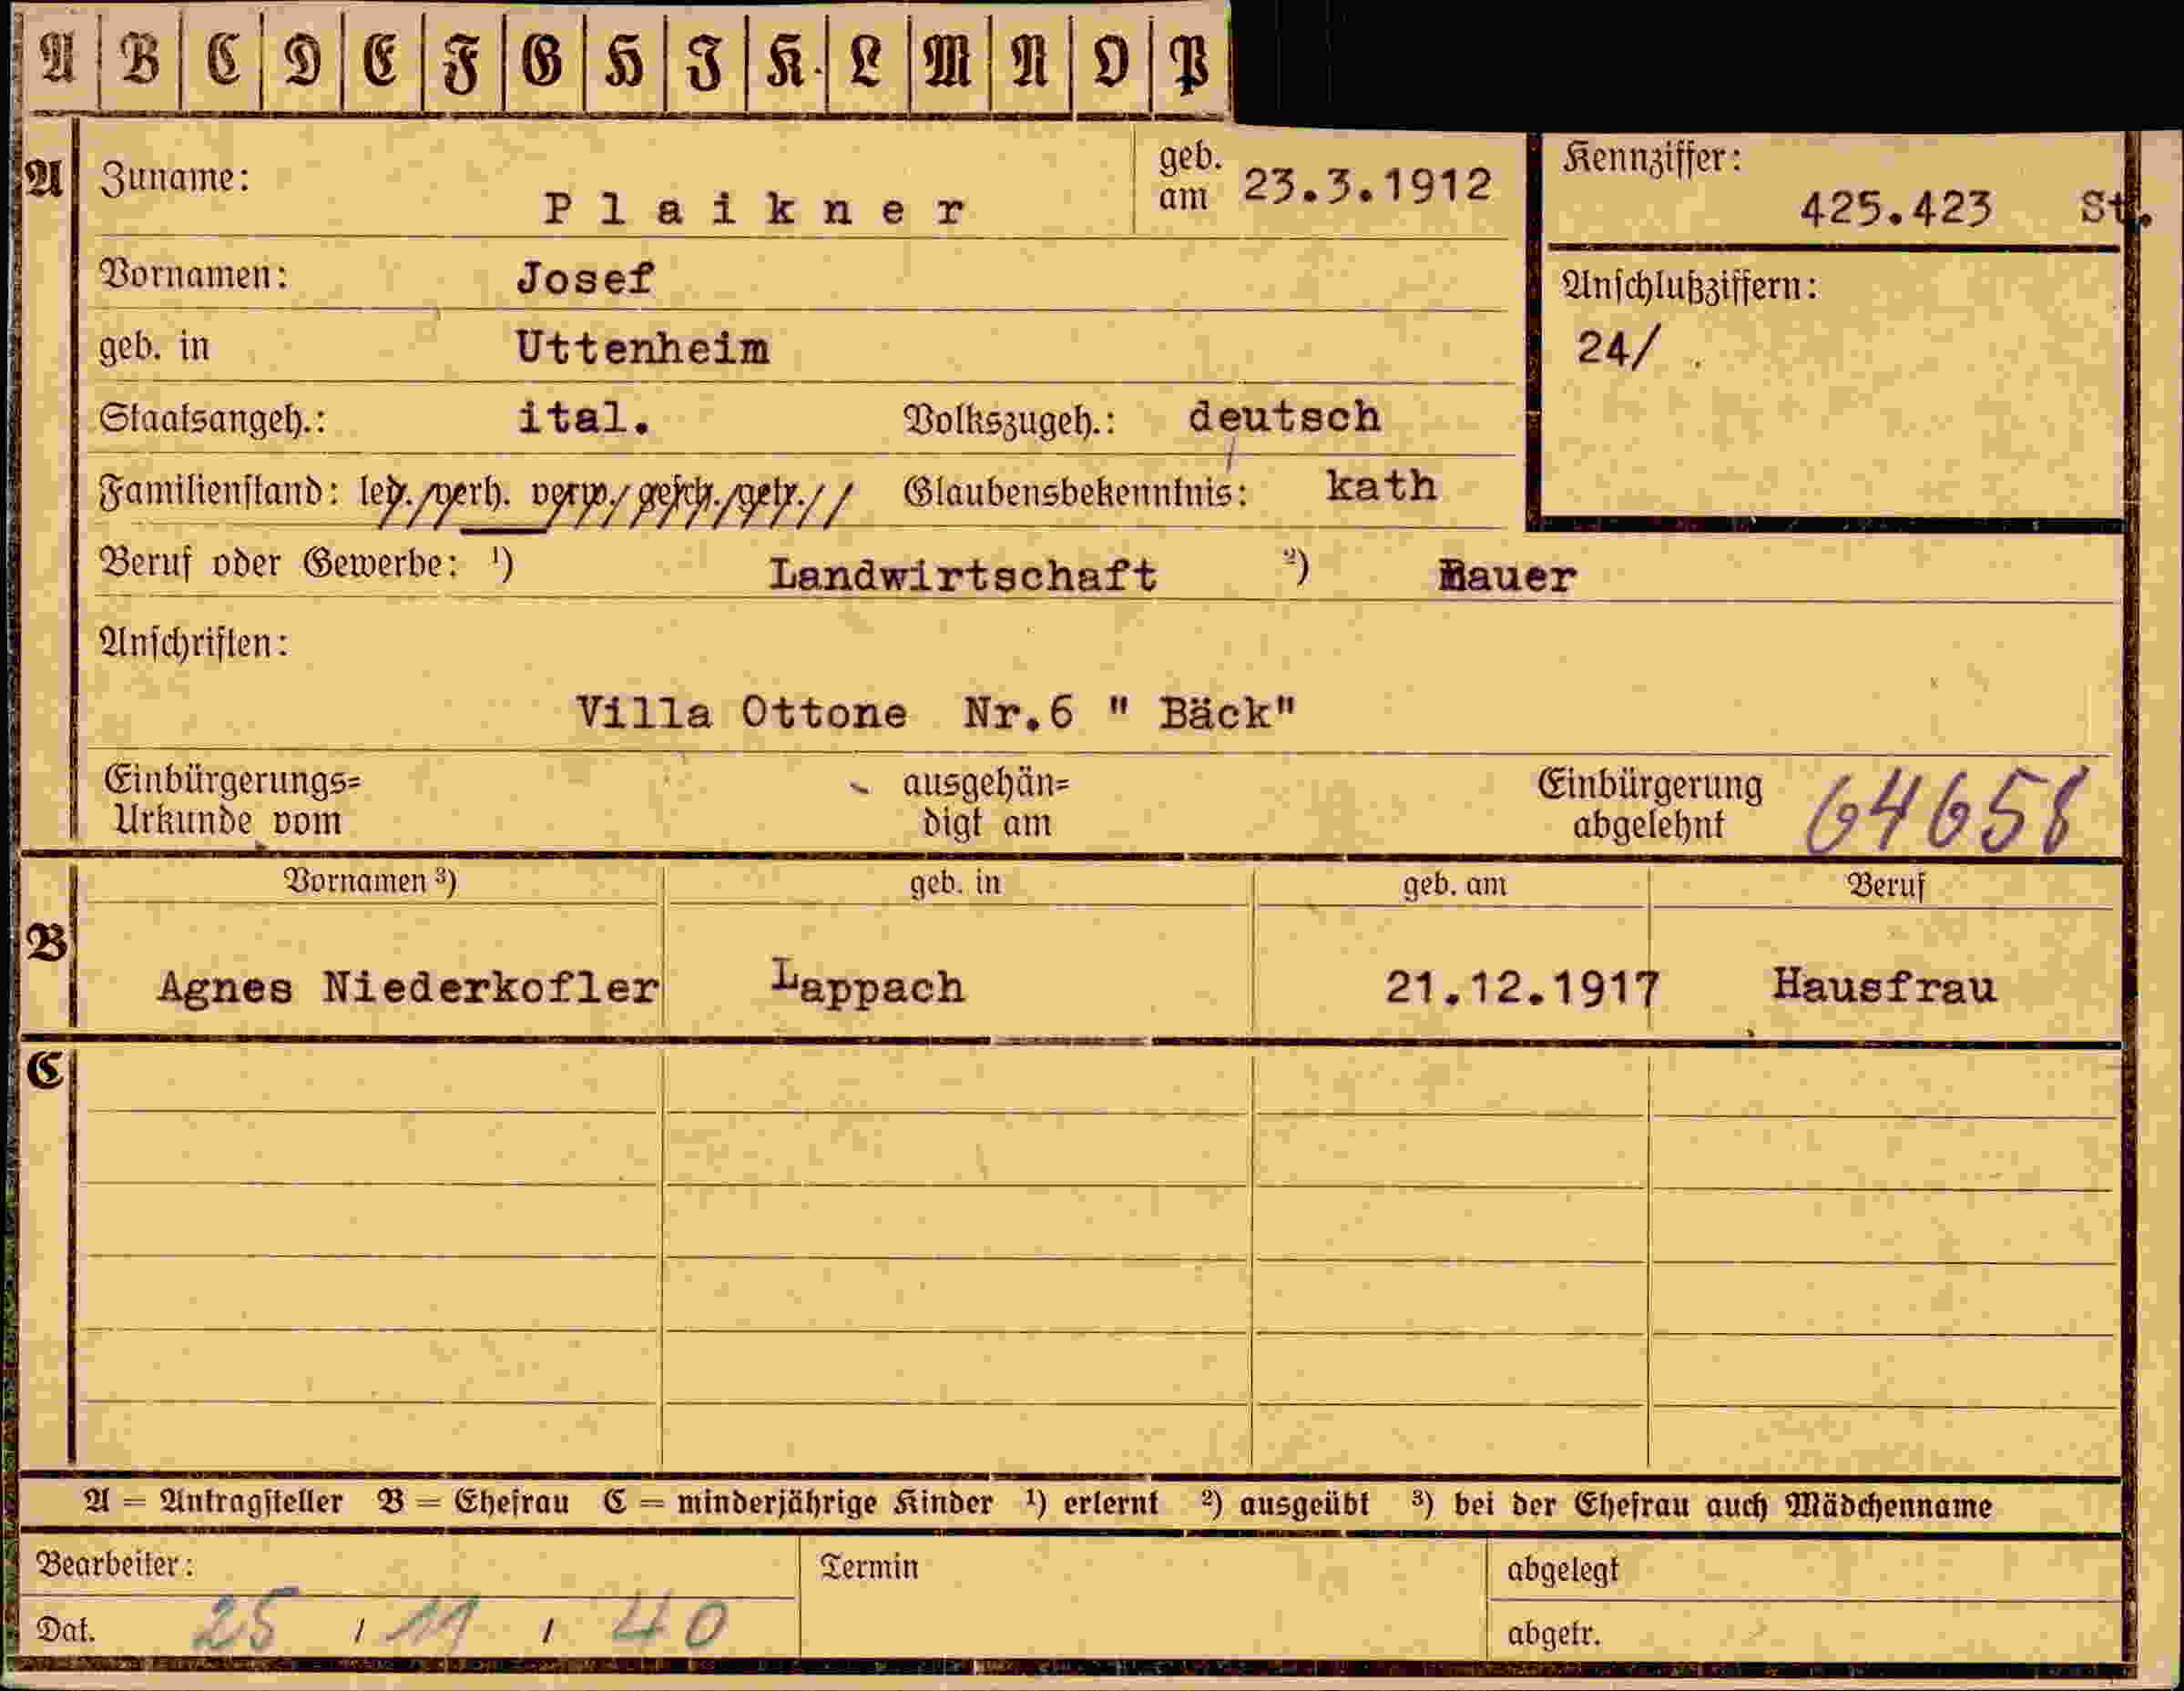 A B C D E F G H I K L M N O P
A Zuname: Plaikner geb. am 23.3.1912 Kennziffer: 425.423 St.
Vornamen: Josef Anschlußziffern:
geb. in Uttenheim 24/
Staatsangeh.: ital. Volkszugeh.: deutsch
Familienstand: led./verh. verw./gesch./getr.// Glaubensbekenntnis: kath
Beruf oder Gewerbe: ¹) Landwirtschaft ²) Bauer
Anschriften:
Villa Ottone Nr.6 " Bäck"
Einbürgerungs= ausgehän= Einbürgerung
Urkunde vom digt am abgelehnt 64658
Vornamen ³) geb. in geb. am Beruf
B Agnes Niederkofler Lappach 21.12.1917 Hausfrau
C
A = Antragsteller B = Ehefrau C = minderjährige Kinder ¹) erlernt ²) ausgeübt ³) bei der Ehefrau auch Mädchenname
Bearbeiter: Termin abgelegt
Dat. 25 / 11 / 40 abgetr.